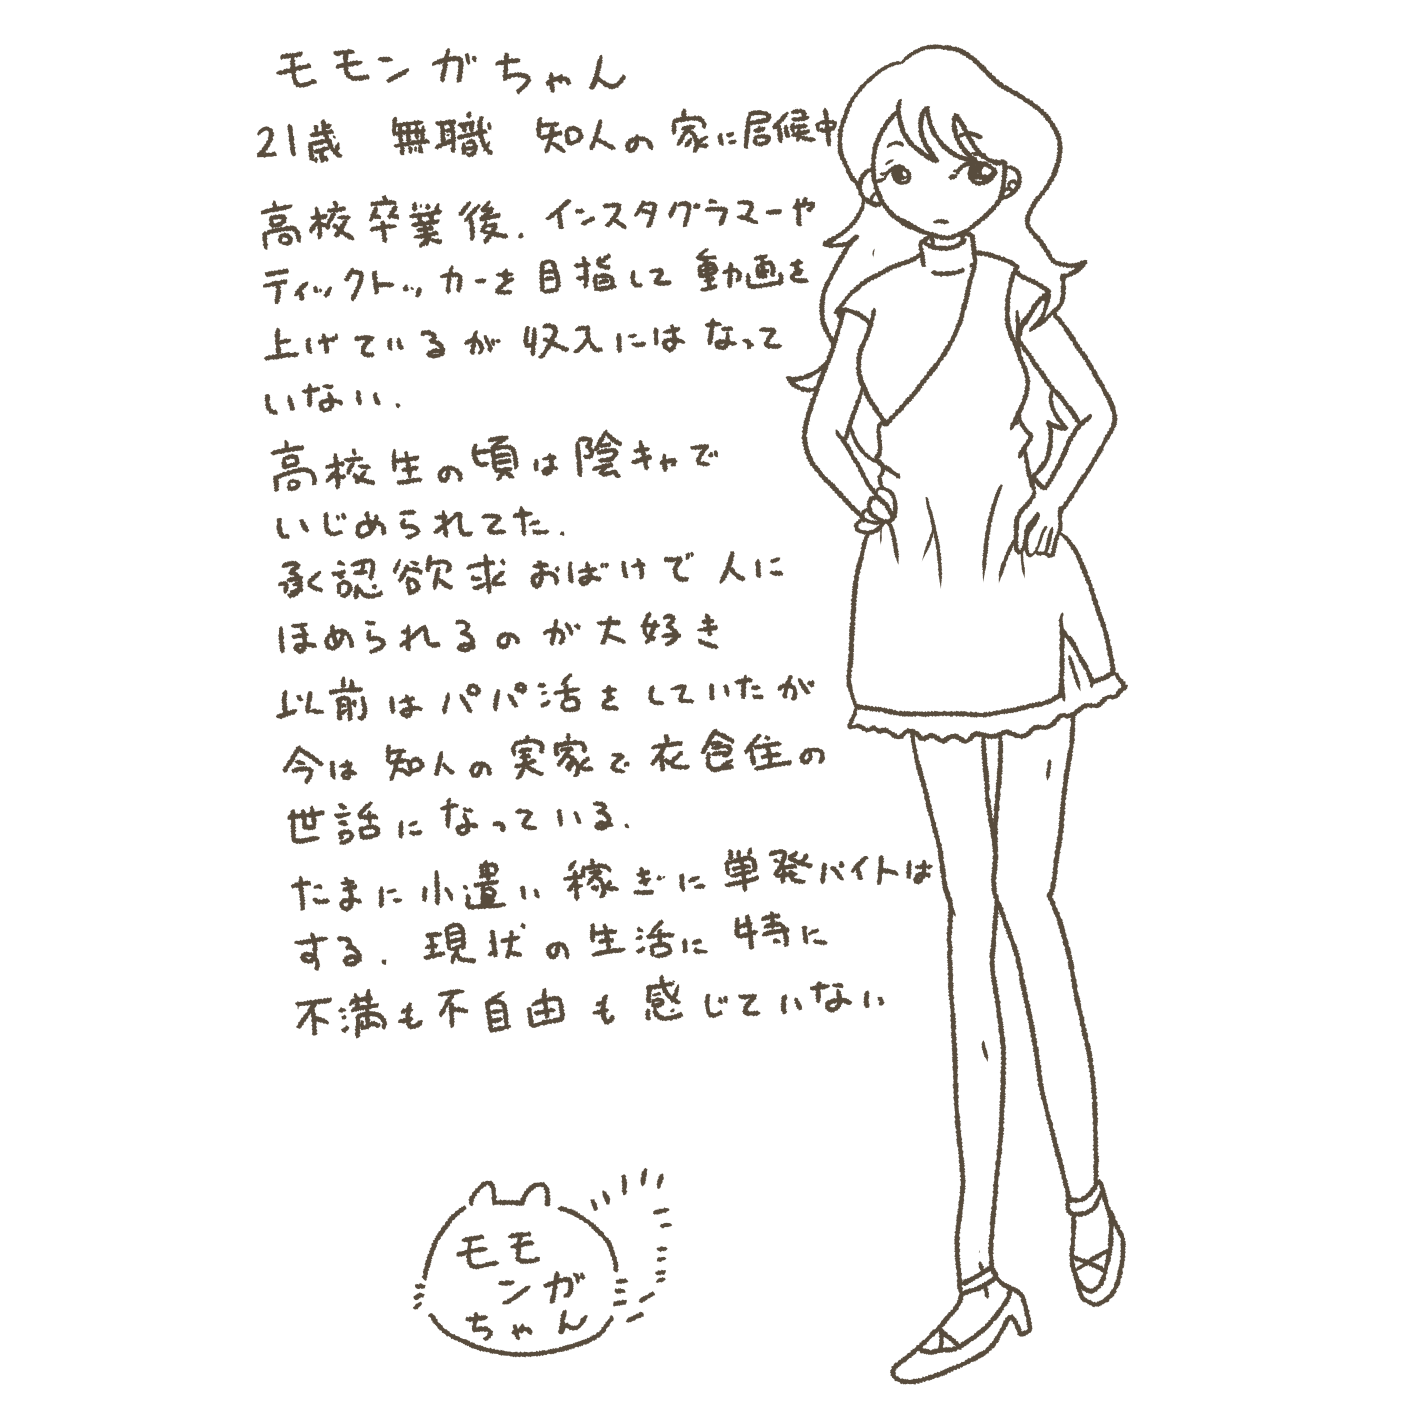 モモンガちゃん
21歳 無職 知人の家に居候中
高校卒業後.インスタグラマーや
ティックトッカーを目指して動画を
上げているが収入にはなって
いない.
高校生の頃は陰キャで
いじめられてた.
承認欲求おばけで人に
ほめられるのが大好き
以前はパパ活をしていたが
今は知人の実家で衣食住の
世話になっている.
たまに小遣い稼ぎに単発バイトは
する.現状の生活に特に
不満も不自由も感じていない
モモ
ンガ
ちゃん